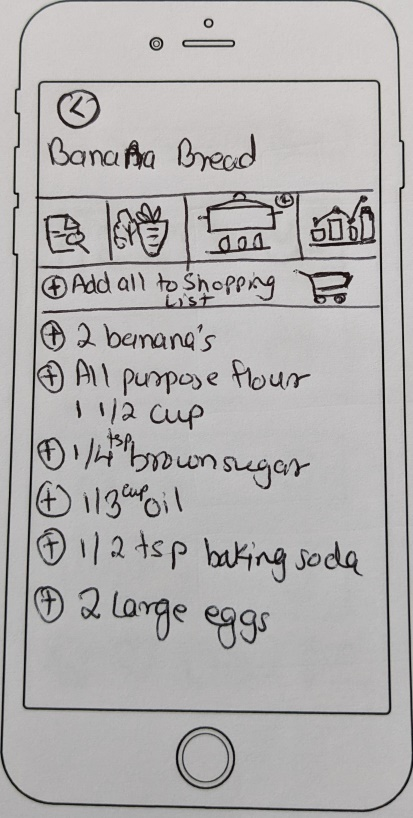 Banana Bread
Add all to Shopping
List
2 banana's
All purpose flour
1 1/2 cup
1/4 tsp brown sugar
1/3 cup oil
1/2 tsp baking soda
2 Large eggs